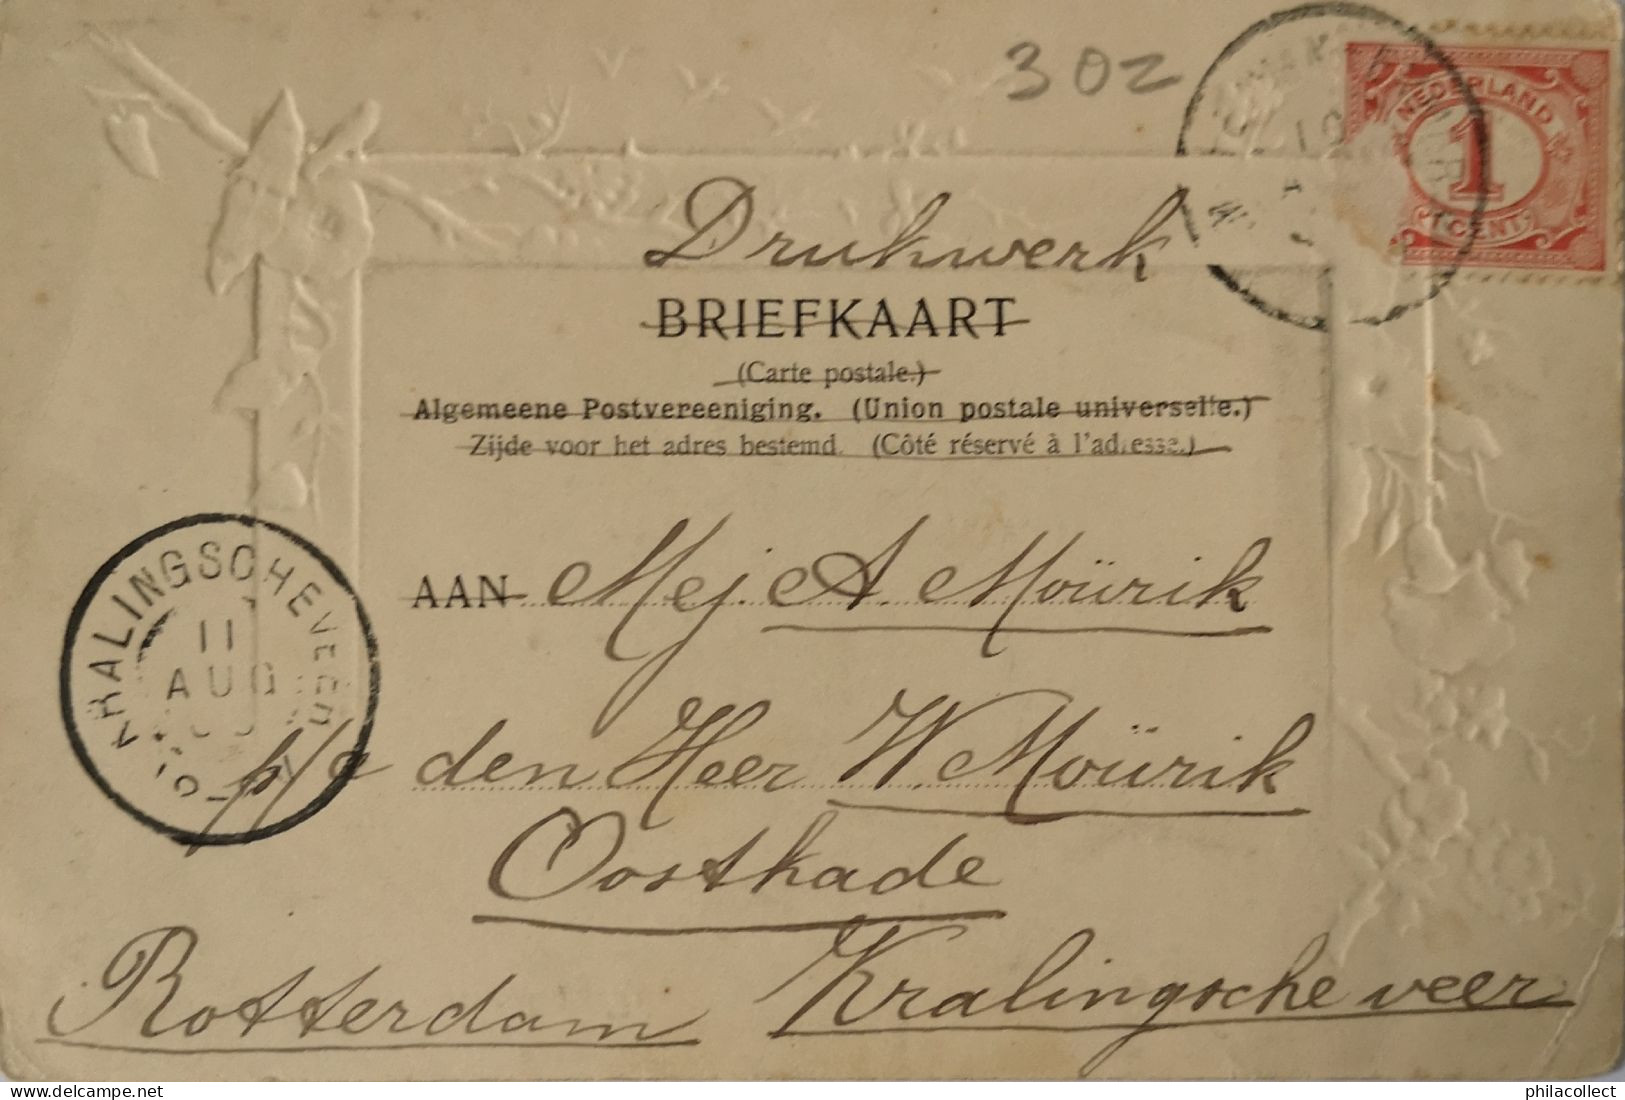 302
NEDERLAND
1
1 CENT
10
Drukwerk
BRIEFKAART
(Carte postale.)
Algemeene Postvereeniging. (Union postale universelle.)
Zijde voor het adres bestemd. (Côté réservé à l'adresse.)
KRALINGSCHEVEER
11
AUG
AAN Mej. A. Moürik
p/a den Heer W Moürik
Oostkade
Rotterdam Kralingscheveer
philacollect